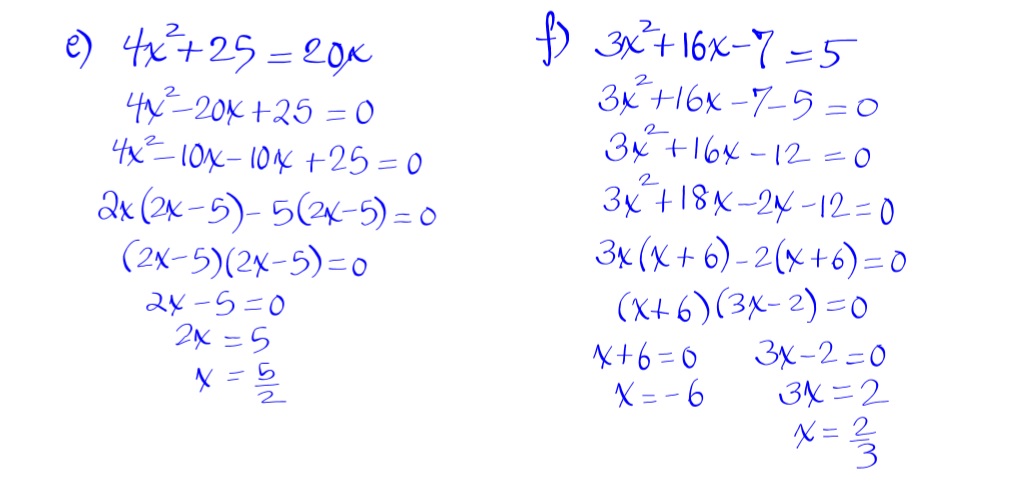 e) 4x²+25=20x
4x²-20x+25=0
4x²-10x-10x+25=0
2x(2x-5)-5(2x-5)=0
(2x-5)(2x-5)=0
2x-5=0
2x=5
x=5/2
f) 3x²+16x-7=5
3x²+16x-7-5=0
3x²+16x-12=0
3x²+18x-2x-12=0
3x(x+6)-2(x+6)=0
(x+6)(3x-2)=0
x+6=0 3x-2=0
x=-6 3x=2
x=2/3